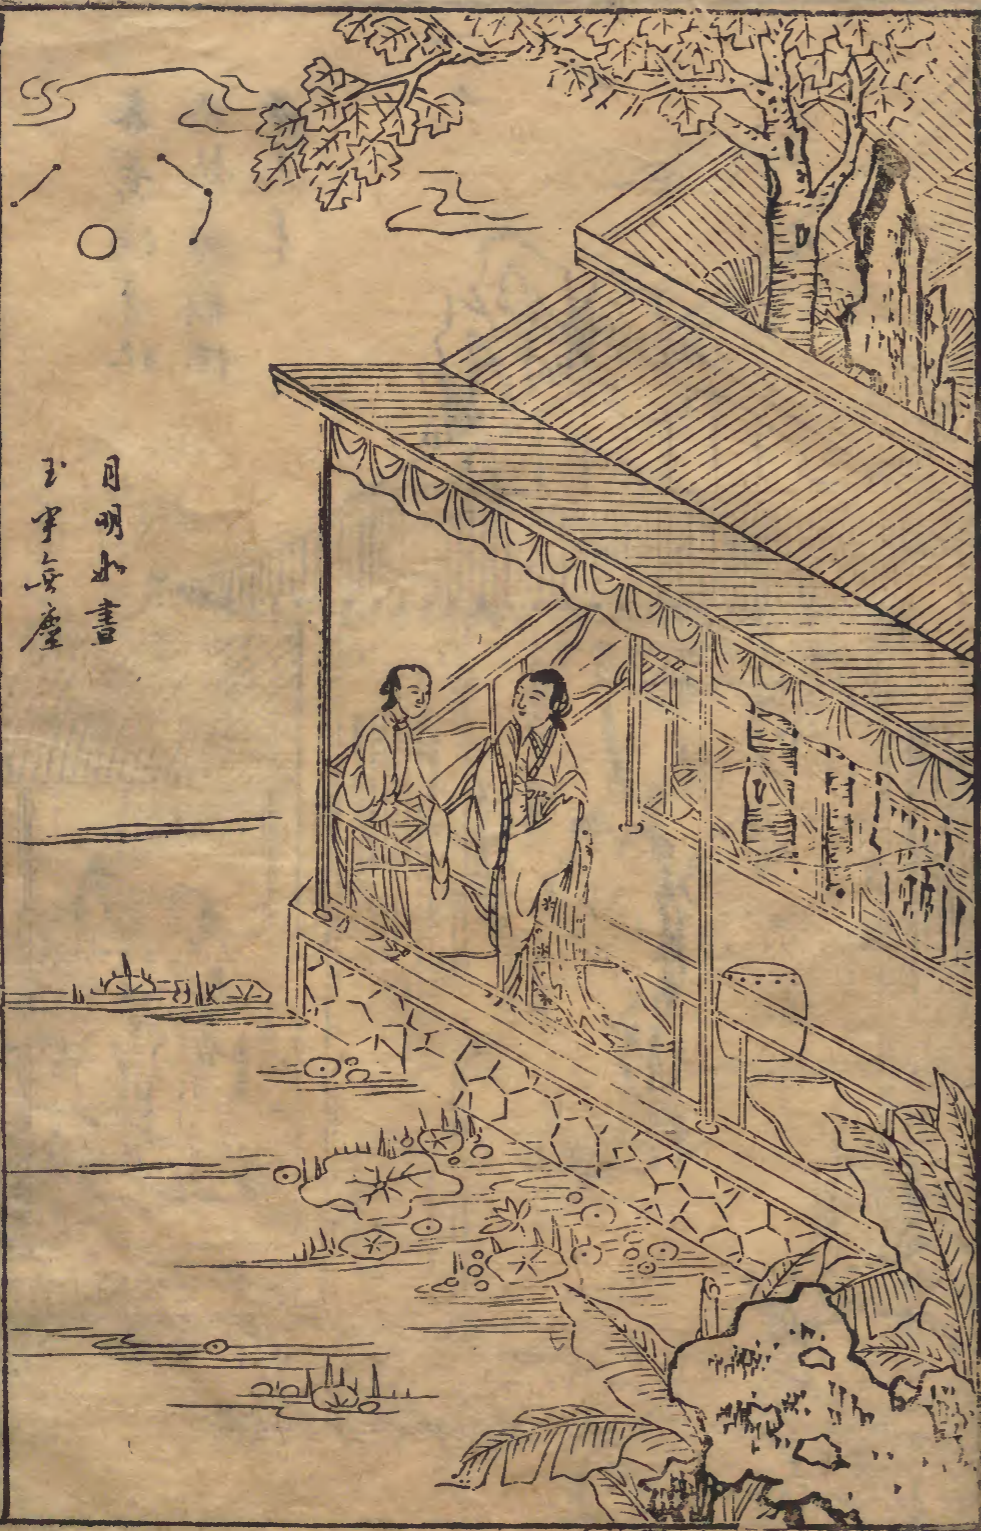 月明如晝
玉宇無塵